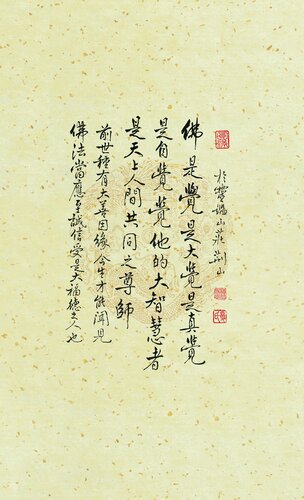 於山莊
佛是覺是大覺是真覺
是自覺覺他的大智慧者
是天上人間共同之尊師
前世種有大善因緣今生才能聞見
佛法當應至誠信受是大福德之人也